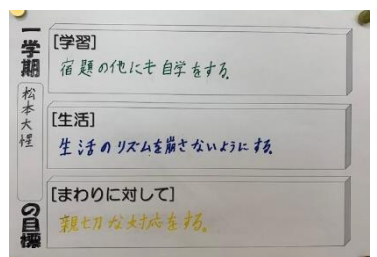 一学期
松本大惺
の目標
[学習]
宿題の他にも自学をする。
[生活]
生活のリズムを崩さないようにする。
[まわりに対して]
親切な対応をする。